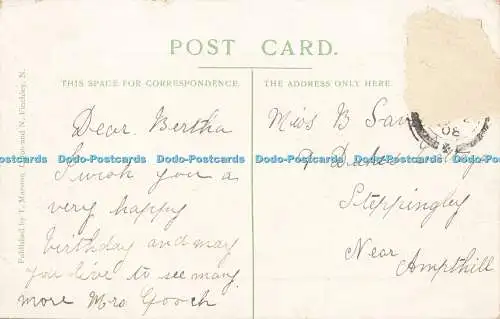 POST CARD.
THIS SPACE FOR CORRESPONDENCE.
Dear Bertha
I wish you a
very happy
birthday and may
you live to see many
more Mrs Gooch
THE ADDRESS ONLY HERE.
Miss B
Steppingley
Near
Ampthill
08
Dodo-Postcards Dodo-Postcards Dodo-Postcards Dodo-Postcards Dodo-Postcards
Published by T. and N. Finchley, N.